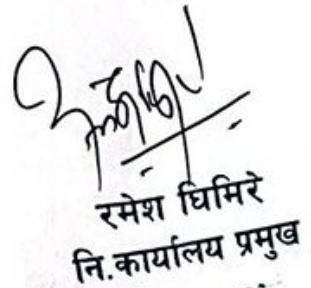 रमेश घिमिरे
नि.कार्यालय प्रमुख